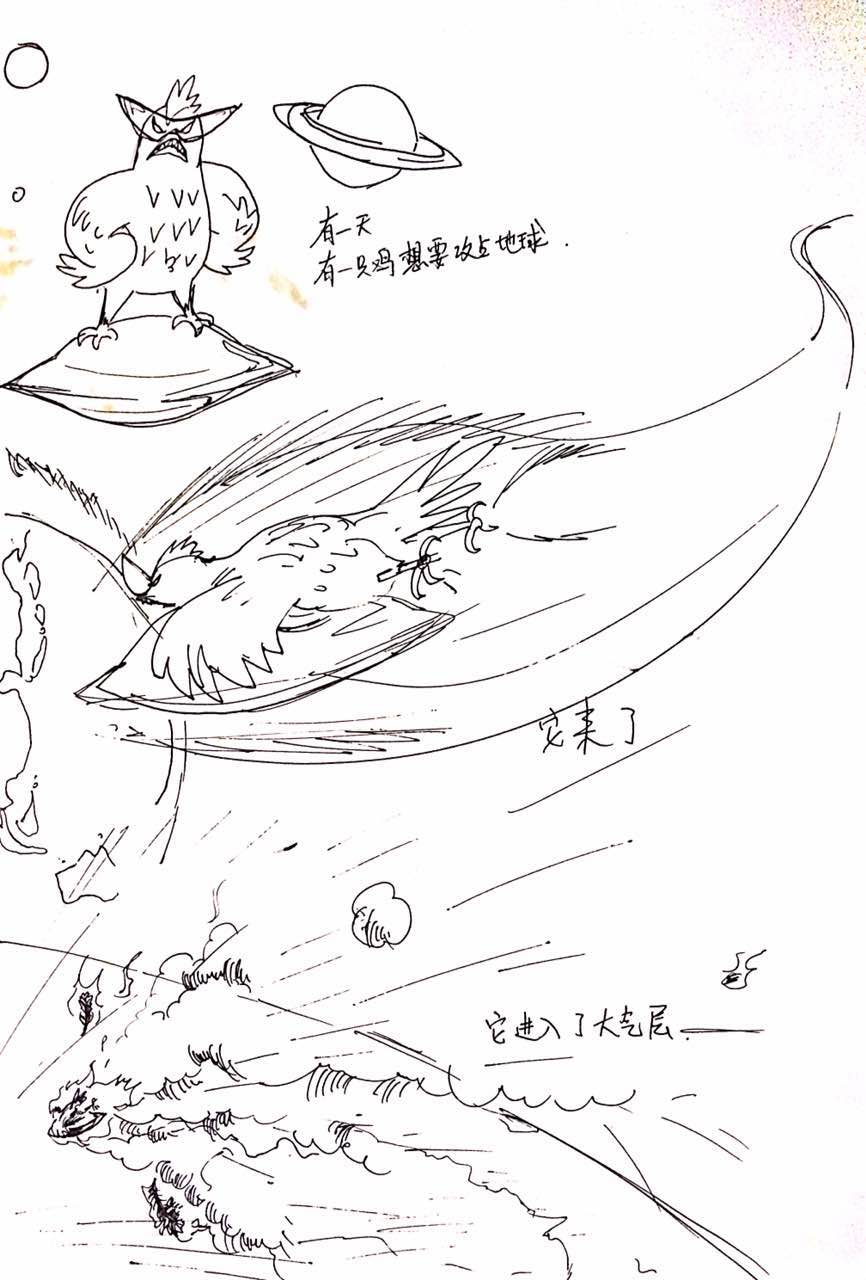 有一天
有一只鸡想要攻占地球.
它来了
它进入了大气层.